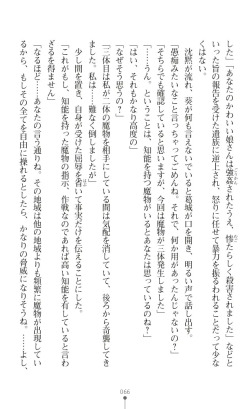 した」「あなたのかわいい娘さんは強姦されたうえ、惨たらしく殺害されました」などと
いった旨の報告を受けた遺族に逆上され、怒りに任せて暴力を振るわれることだって少な
くはない。
　沈黙が流れ、葵が何も言えないでいると葛城が口を開き、明るい声で話し出す。
「愚痴みたいなこと言っちゃってごめんね。それで、何か用があったんじゃないの？」
「そちらでも確認していると思いますが、今回は魔物が三体発生しました」
「……うん。ということは、知能を持つ魔物がいるとあなたは思っているのね？」
「はい、それもかなり高度の」
「なぜそう思うの？」
「三体目は私が二体の魔物を相手にしている間は気配を消していて、後ろから奇襲してき
ました。私は……難なく倒しましたが」
　少し間を置き、自身が受けた屈辱を省いて事実だけを伝えることにした。
「これがもし、知能を持った魔物の指示、作戦なのであれば高い知能を有していると言わ
ざるを得ません」
「なるほど……あなたの言う通りね。その地域は他の地域よりも頻繁に魔物が出現してい
るから、もしその全てを自由に操れるとしたら、かなりの脅威になりそうね。……よし、
066